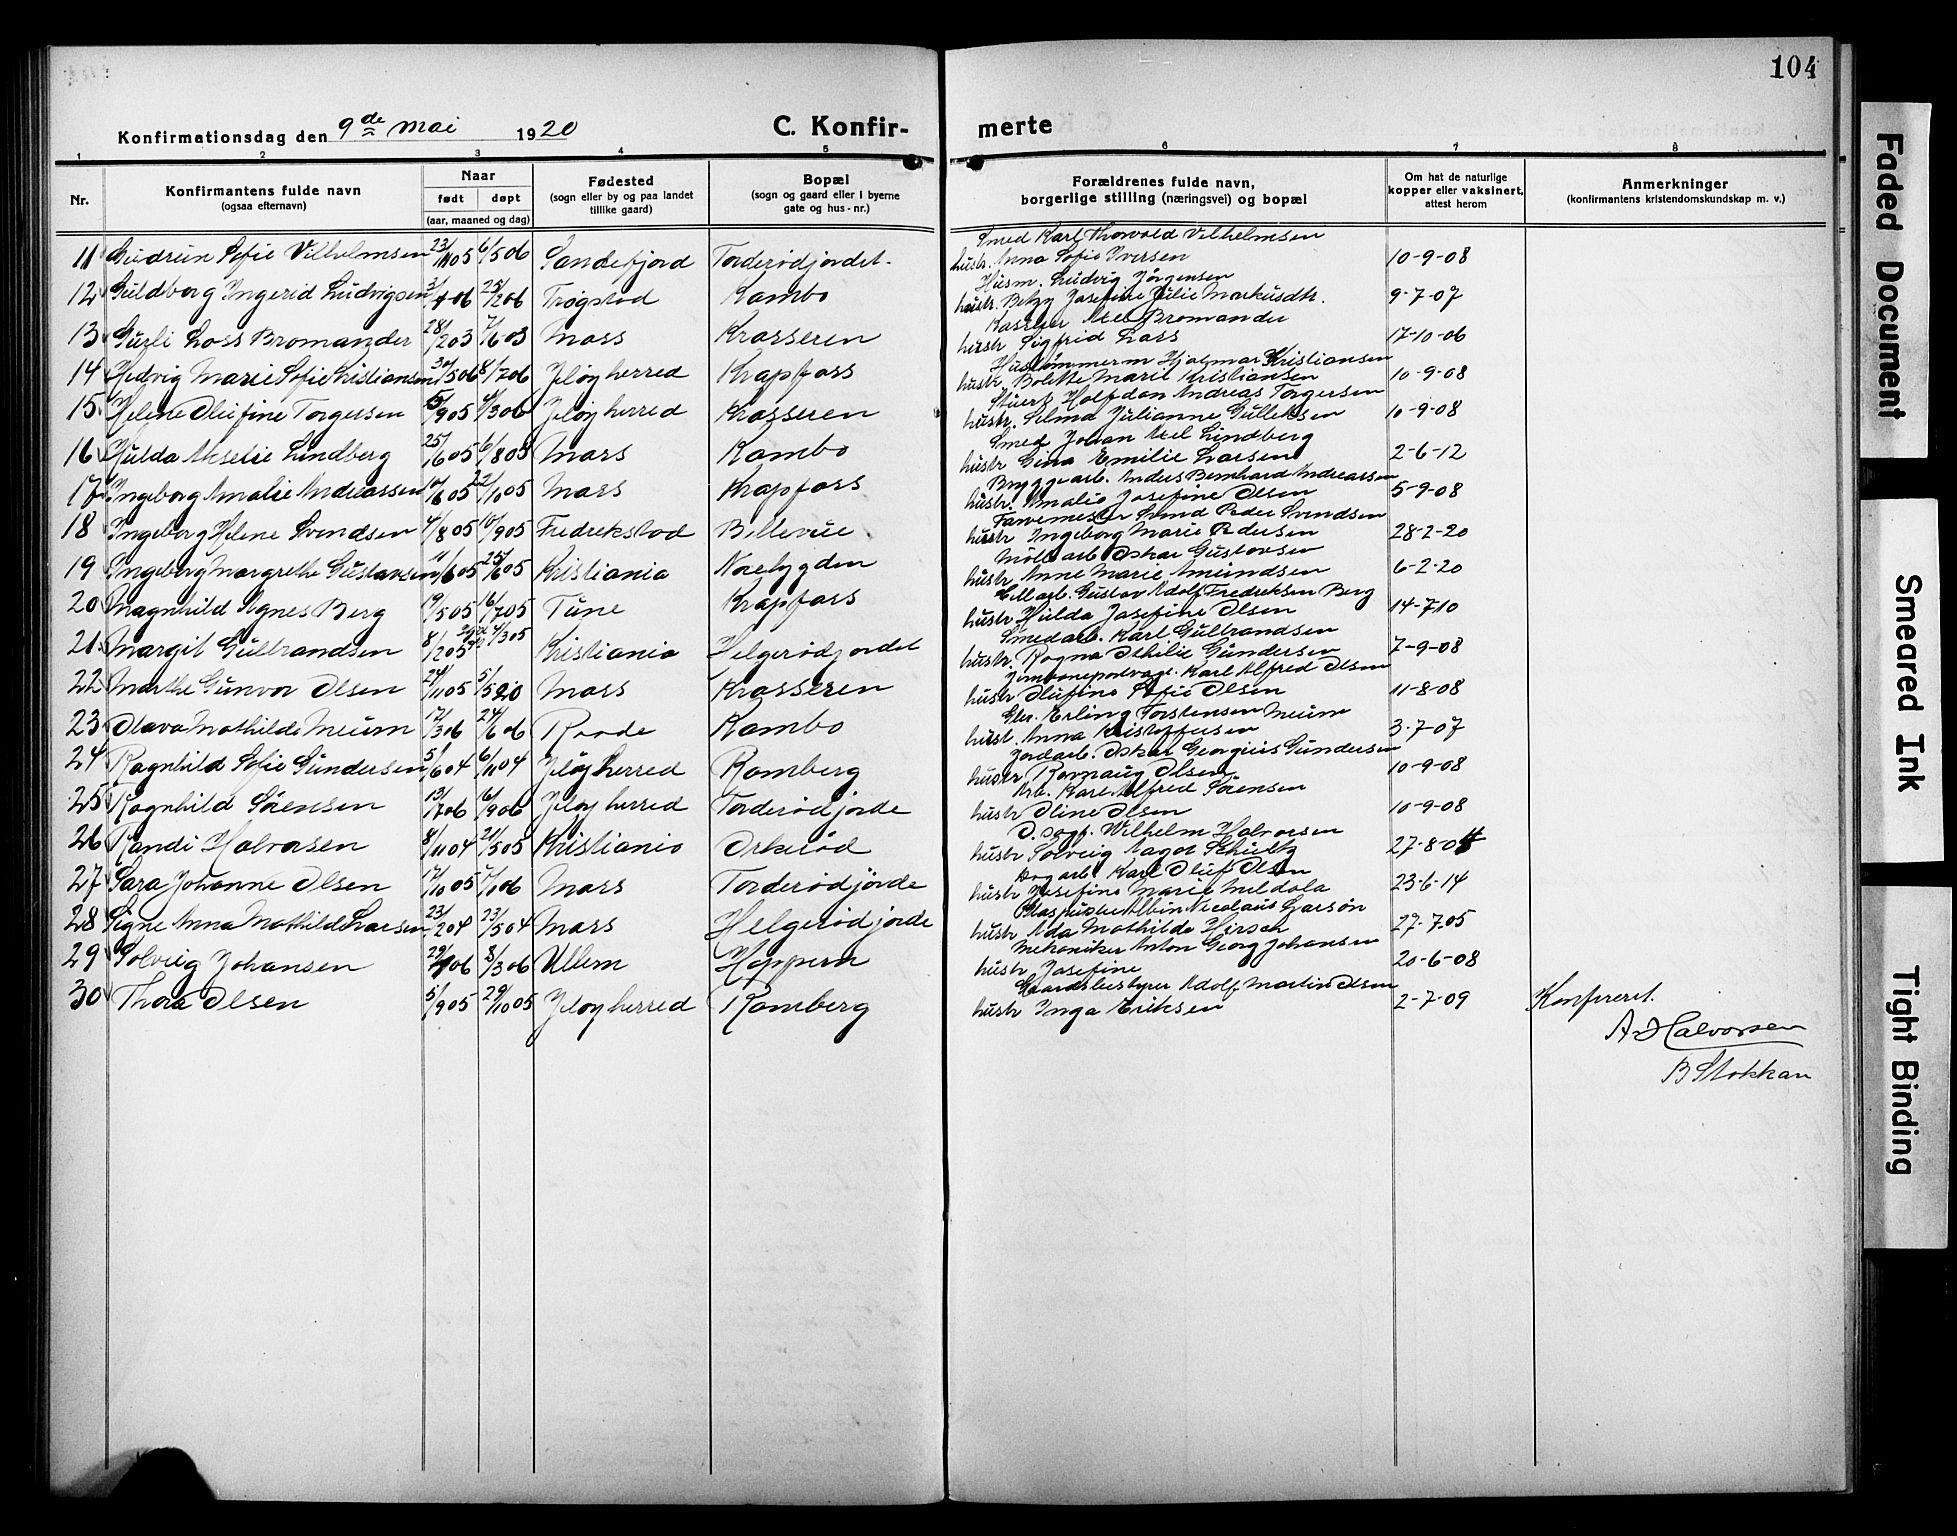 104
Konfirmationsdag den 9de mai 1920
C. Konfirmerte
1 2 3 4 5 6 7 8
Nr.
Konfirmantens fulde navn
(ogsaa efternavn)
Naar
født døpt
(aar, maaned og dag)
Fødested
(sogn eller by og paa landet
tillike gaard)
Bopæl
(sogn og gaard eller i byerne
gate og hus-nr.)
Forældrenes fulde navn,
borgerlige stilling (næringsvei) og bopæl
Om hat de naturlige
kopper eller vaksinert,
attest herom
Anmerkninger
(konfirmantens kristendomskundskap m. v.)
Smed Karl Thorvald Vilhelmsen
11 Gudrun Sofie Vilhelmsen 23/11 05 6/5 06 Sandefjord Torderødjordet. hustr. Anna Sofie Iversen 10-9-08
Husm. Ludvig Jørgensen
12 Guldborg Ingerid Ludvigsen 3/1 06 25/2 06 Trøgstad Kambo hustr. Betzy Josefine Julie Markusdtr. 9-7-07
Kasserer Axel Bromander
13 Gurli Lass Bromander 28/2 03 7/6 03 Moss Krosseren hustr Sigfrid Lass 17-10-06
Hustømmerm Hjalmar Kristiansen
14 Hedvig Marie Sofie Kristiansen 30/5 06 8/7 06 Jeløy herred Krapfoss hustr Bolette Marie Kristiansen 10-9-08
Stuert Halfdan Andreas Torgersen
15 Helene Olufine Torgersen 5/9 05 4/3 06 Jeløy herred Krosseren hustr. Selma Julianne Gulliksen 10-9-08
Smed Johan Axel Lindberg
16 Hulda Akselie Lindberg 25/6 05 6/8 05 Moss Kambo hustr Gina Emilie Larsen 2-6-12
Bryggearb. Anders Bernhard Andreassen
17 Ingeborg Amalie Andreassen 10/6 05 22/10 05 Moss Krapfoss hustr. Amalie Josefine Olsen 5-9-08
Farvemester Svend Peder Svendsen
18 Ingeborg Helene Svendsen 4/8 05 10/9 05 Fredrekstad Bellevue hustr Ingeborg Marie Pedersen 28-2-20
Møllearb Oskar Gustavsen
19 Ingeborg Margrethe Gustavsen 11/6 05 25/6 05 Kristiania Norebygden hustr Anne Marie Amundsen 6-2-20
Cellarb. Gustav Adolf Fredriksen Berg
20 Magnhild Agnes Berg 19/5 05 16/7 05 Tune Krapfoss hustr Hulda Josefine Olsen 14-7-10
Smedarb. Karl Gulbrandsen
21 Margit Gulbrandsen 8/12 05 4/3 05 Kristiania Helgerødjordet hustr. Ragna Othilie Gundersen 7-9-08
Jernbaneportvagt. Karl Alfred Olsen
22 Marthe Gunvor Olsen 24/11 05 5/5 20 Moss Krosseren hustr Olufine Sofie Olsen 11-8-08
Erling Torstensen Meum
23 Olava Mathilde Meum 17/3 06 24/6 06 Raade Kambo hust. Anna Kristoffersen 3-7-07
Jordarb. Oskar Georgius Gundersen
24 Ragnhild Sofie Gundersen 5/6 04 6/11 04 Jeløy herred Ramberg hustr Ravnaug Olsen 10-9-08
Arb. Karl Alfred Sørensen
25 Ragnhild Sørensen 13/7 06 16/9 06 Jeløy herred Torderødjorde hustr Oline Olsen 10-9-08
O. sagf. Wilhelm Halvorsen
26 Randi Halvorsen 8/11 04 21/5 05 Kristiania Orkerød hustr Solveig Nagot Schultz 27-8-04
Karl Oluf Olsen
27 Sara Johanne Olsen 17/10 05 7/1 06 Moss Torderødjorde hustr Josefine Marie Meldola 23-6-14
Glaspuster Albin Nicolaus Larson
28 Signe Anna Mathilde Larsen 23/2 04 23/5 04 Moss Helgerødjorde hustr Ada Mathilde Hirsch 27-7-05
Mekaniker Anton Georg Johansen
29 Solveig Johansen 29/1 06 8/3 06 Ullern Hoppern hustr Josefine 20-6-08
Gaardsbestyrer Adolf Martin Olsen
30 Thora Olsen 5/9 05 29/10 05 Jeløy herred Ramberg hustr Inga Eriksen 2-7-09 Konfereret.
A Halvorsen
B Stokkan
Faded Document
Smeared Ink
Tight Binding